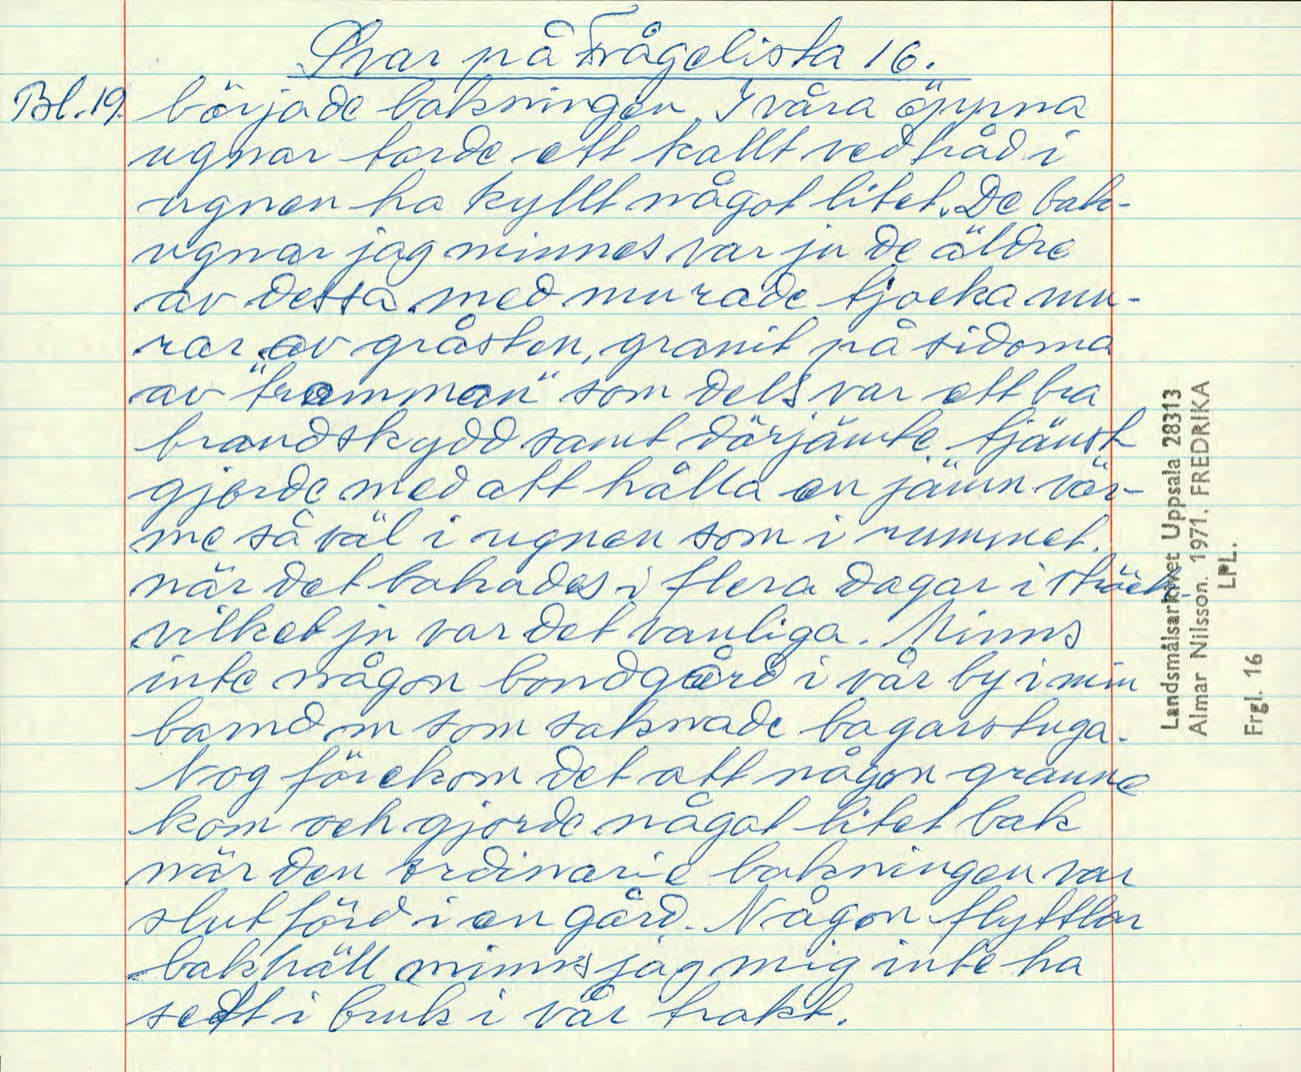 Svar på Frågelista 16.
Bl.19. började bakningen. I våra öppna
ugnar torde ett kallt vedträd i
ugnen ha kyllt något litet. De bak-
ugnar jag minnes var ju de äldre
av dessa med murade tjocka mu-
rar av gråsten, granit på sidorna
av "framman" som dels var ett bra
brandskydd samt därjämte tjänst
gjorde med att hålla en jämn vär-
me så väl i ugnen som i rummet.
när det bakades i flera dagar i sträck
vilket ju var det vanliga. Minns
inte någon bondgård i vår by i min
barndom som saknade bagarstuga.
Nog förekom det att någon granne
kom och gjorde något litet bak
när den ordinarie bakningen var
slutförd i en gård. Någon flyttbar
bakhäll minns jag mig inte ha
sett i bruk i vår trakt.
Landsmålsarkivet Uppsala 28313
Almar Nilsson. 1971. FREDRIKA
LPL.
Frgl. 16